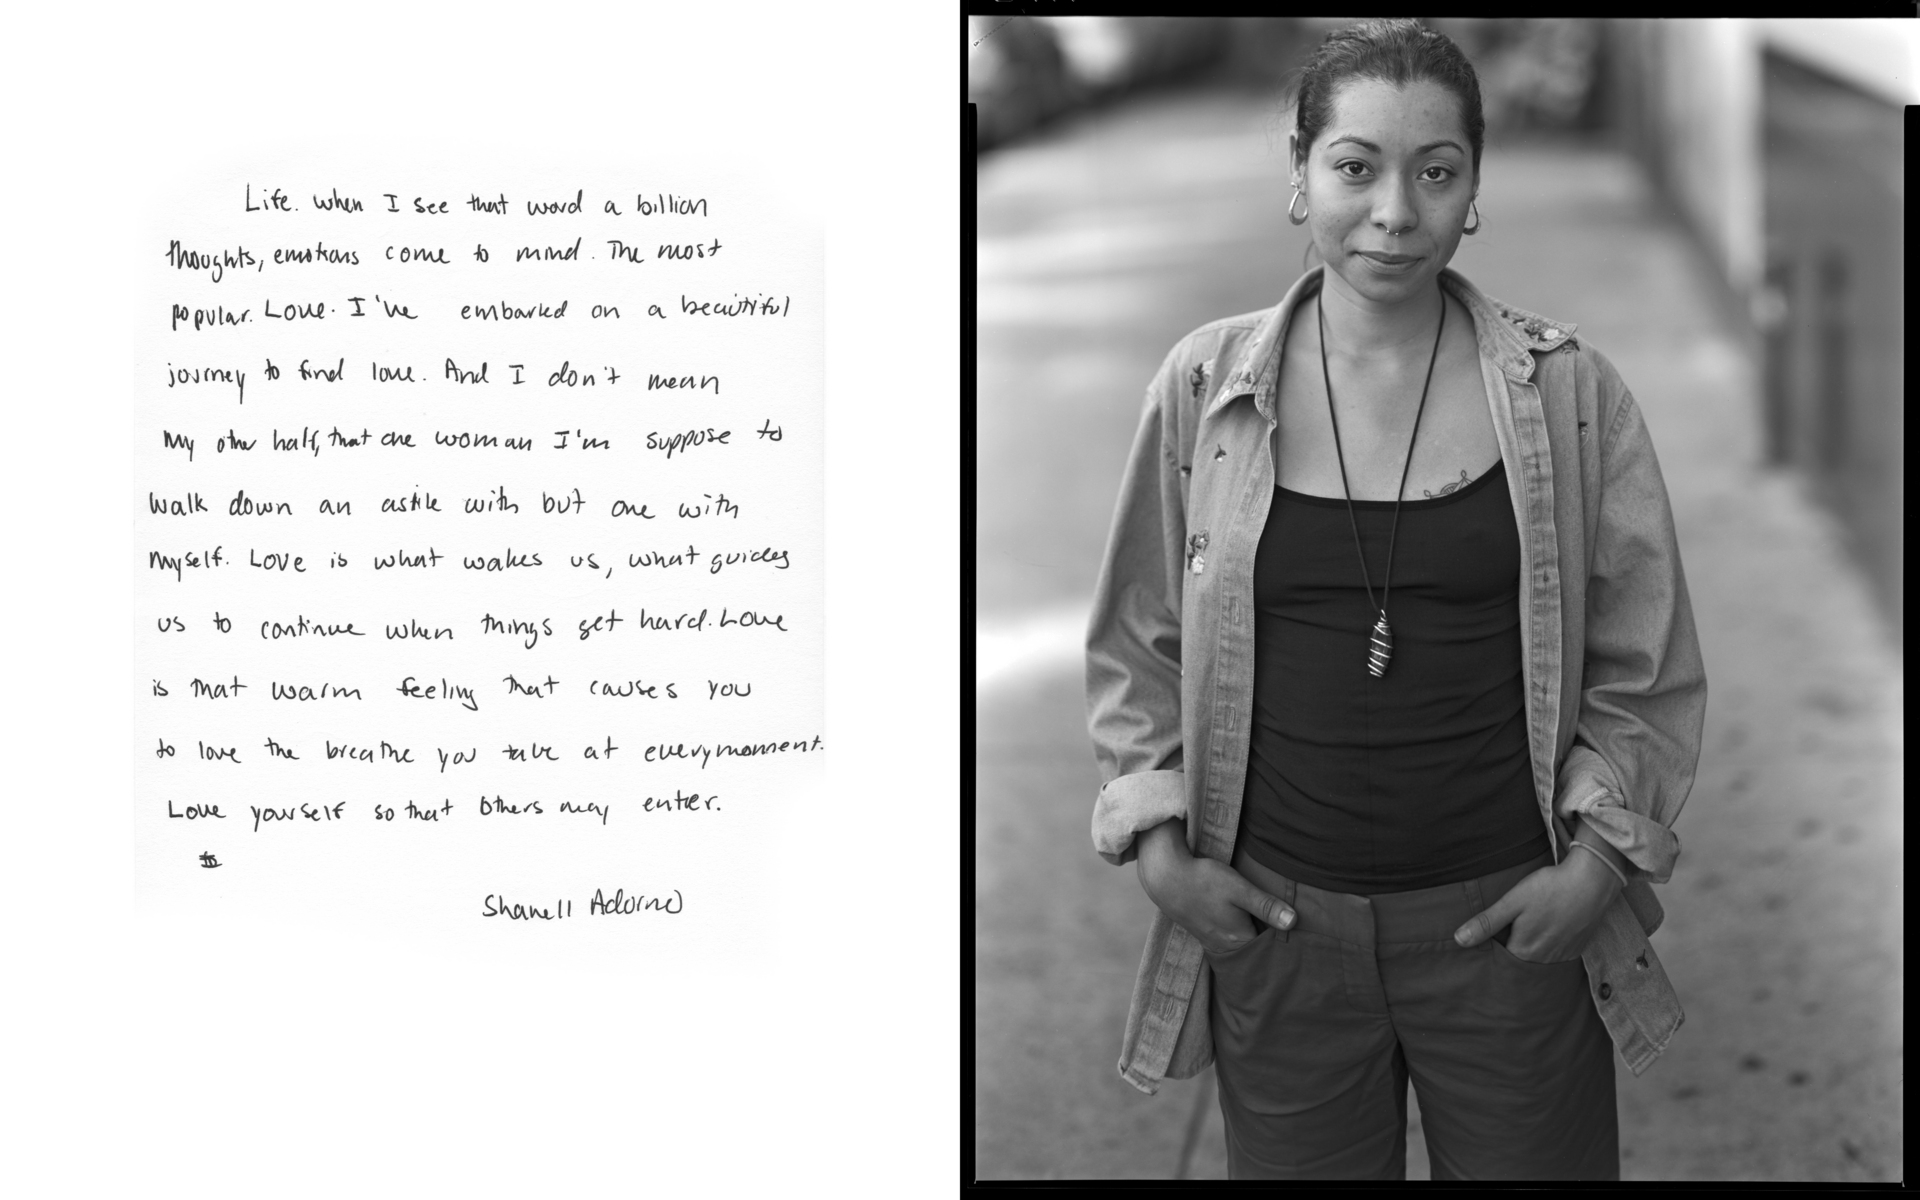 Life. when I see that word a billion
thoughts, emotions come to mind. The most
popular. Love. I've embarked on a beautiful
journey to find love. And I don't mean
my other half, that one woman I'm suppose to
walk down an astile with but one with
myself. Love is what wakes us, what guides
us to continue when things get hard. Love
is that warm feeling that causes you
to love the breathe you take at everymoment.
Love yourself so that others may enter.
Shanell Adorno